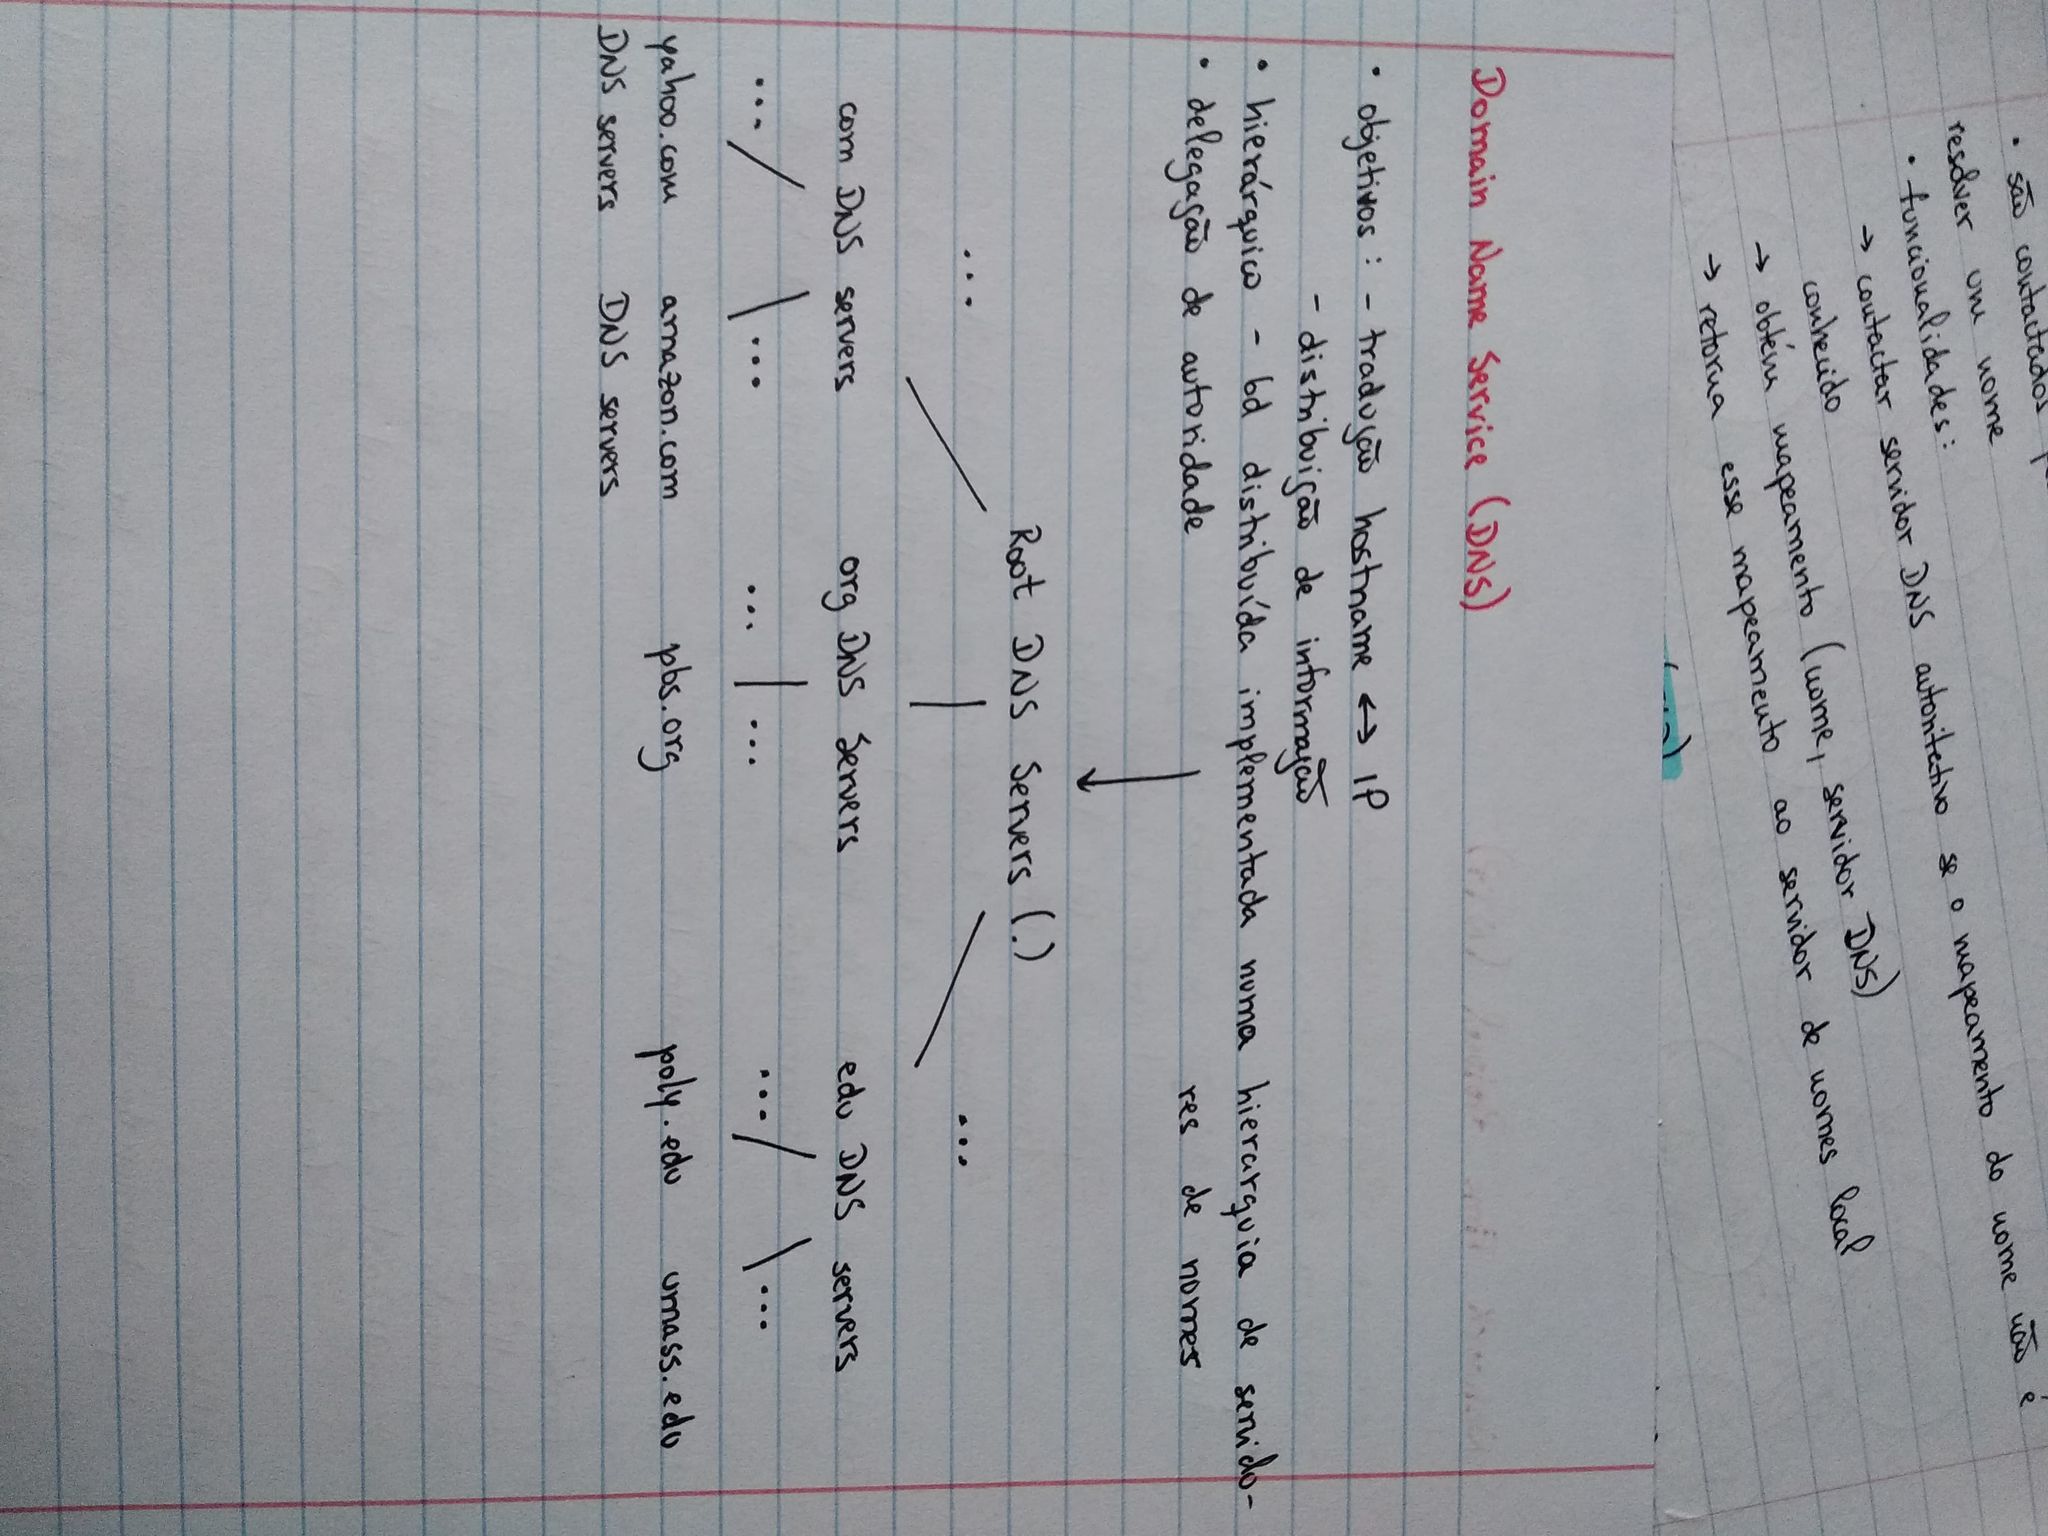 • são contactados
resolver um nome
• funcionalidades:
→ contactar servidor DNS autoritativo se o mapeamento do nome não é
conhecido
→ obtém mapeamento (nome, servidor DNS)
→ retorna esse mapeamento ao servidor de nomes local
Domain Name Service (DNS)
• objetivos: - tradução hostname ↔ IP
- distribuição de informação
• hierárquico - bd distribuída implementada numa hierarquia de servido-
• delegação de autoridade res de nomes
Root DNS Servers (.)
... ...
com DNS servers org DNS Servers edu DNS servers
... ... ... ... ... ...
yahoo.com amazon.com pbs.org poly.edu umass.edu
DNS servers DNS servers